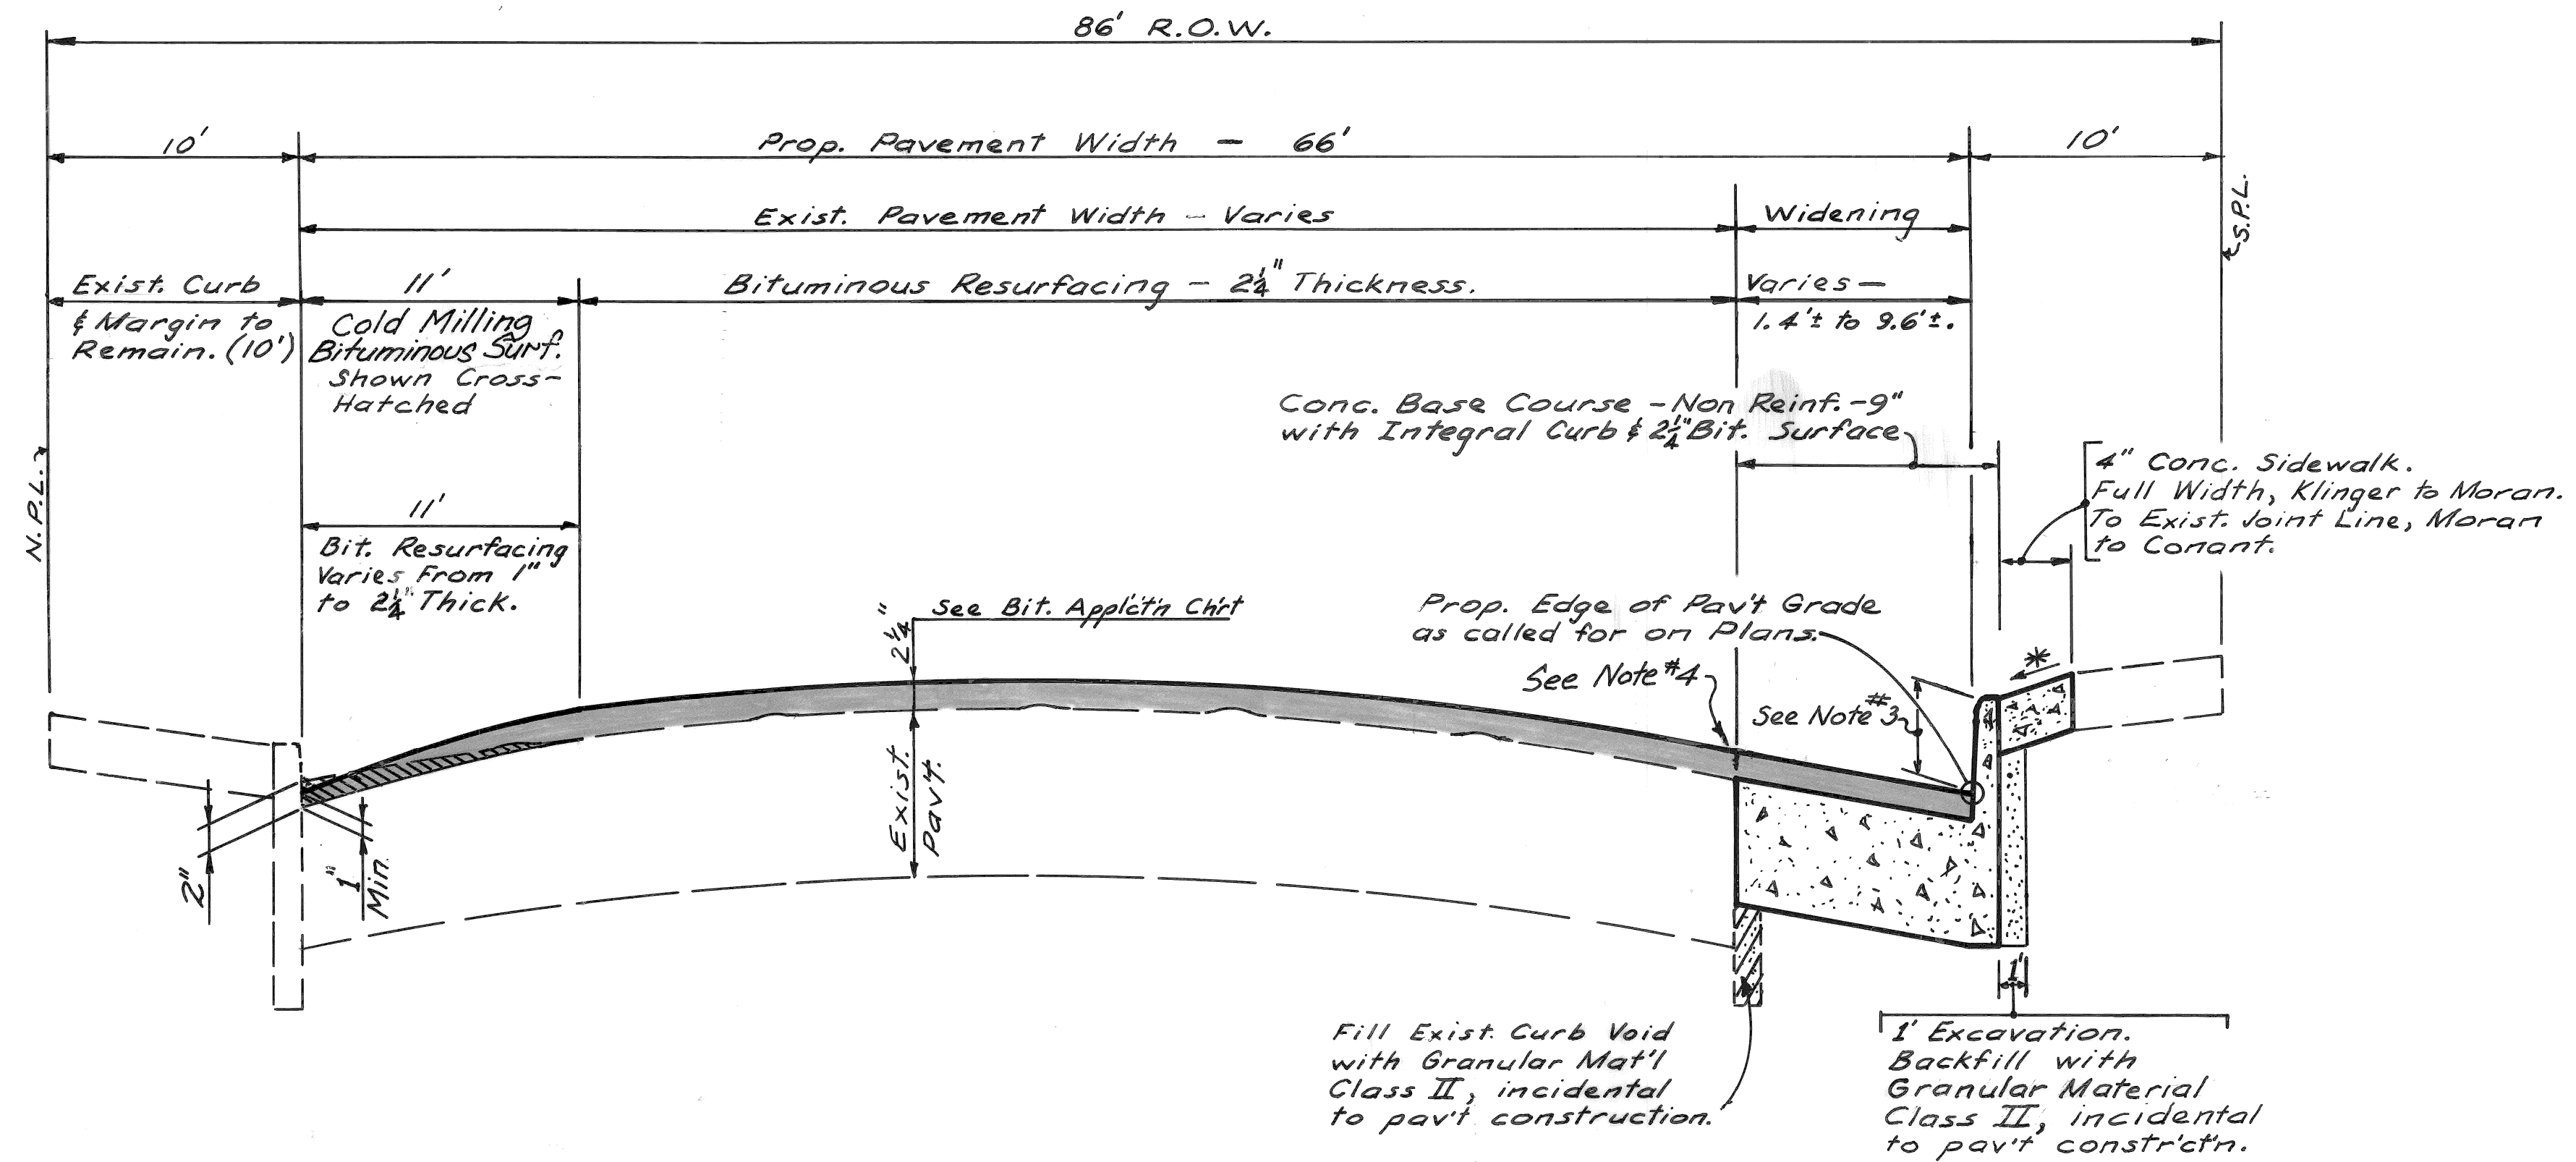 86' R.O.W.
10'
Prop. Pavement Width - 66'
10'
Exist. Pavement Width - Varies
Widening
S.P.L.
Exist. Curb
& Margin to
Remain. (10')
11'
Cold Milling
Bituminous Surf.
Shown Cross-
Hatched
Bituminous Resurfacing - 2 1/4" Thickness.
Varies -
1.4'± to 9.6'±.
Conc. Base Course - Non Reinf. - 9"
with Integral Curb & 2 1/4" Bit. Surface
N.P.L.
4" Conc. Sidewalk.
Full Width, Klinger to Moran.
To Exist. Joint Line, Moran
to Conant.
11'
Bit. Resurfacing
Varies From 1"
to 2 1/4" Thick.
2 1/4"
See Bit. Applct'n Ch'rt
Prop. Edge of Pav't Grade
as called for on Plans.
See Note #4
*
See Note #3
Exist.
Pav't.
2"
1"
Min.
1'
Fill Exist. Curb Void
with Granular Mat'l
Class II, incidental
to pav't construction.
1' Excavation.
Backfill with
Granular Material
Class II, incidental
to pav't constr'ct'n.